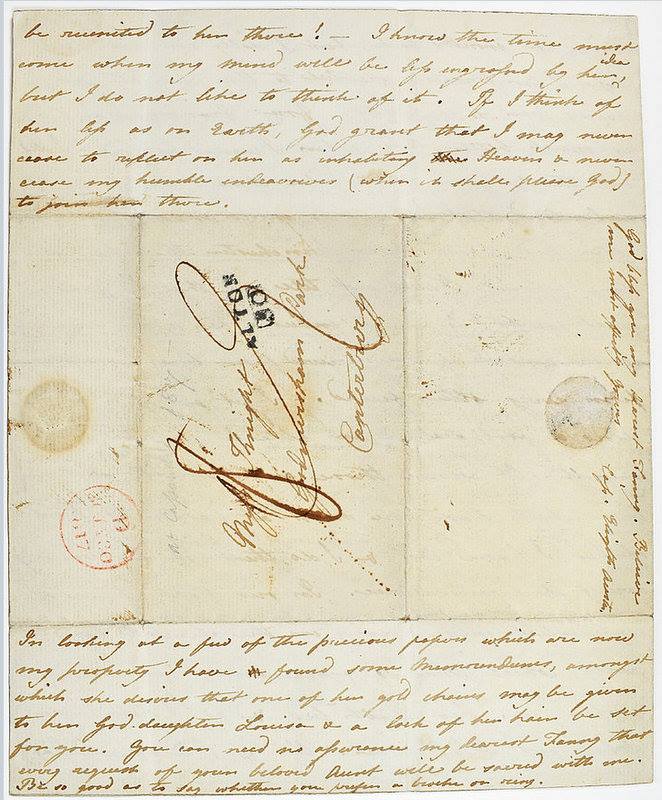 be reunited to her there! — I know the time must
come when my mind will be less engrossed by her idea,
but I do not like to think of it. If I think of
her less as on Earth, God grant that I may never
cease to reflect on her as inhabiting Heaven & never
cease my humble endeavours (when it shall please God)
to join her there.
Miss Knight
Godmersham Park
Canterbury
ALTON
God bless you my dearest Fanny. Believe
me most affectly Yours
Cass. Elizth Austen
In looking at a few of the precious papers which are now
my property I have found some Memorandums, amongst
which she desires that one of her gold chains may be given
to her God-daughter Louisa & a lock of her hair be set
for you. You can need no assurance my dearest Fanny that
every request of your beloved Aunt will be sacred with me.
Be so good as to say whether you prefer a broche or ring.